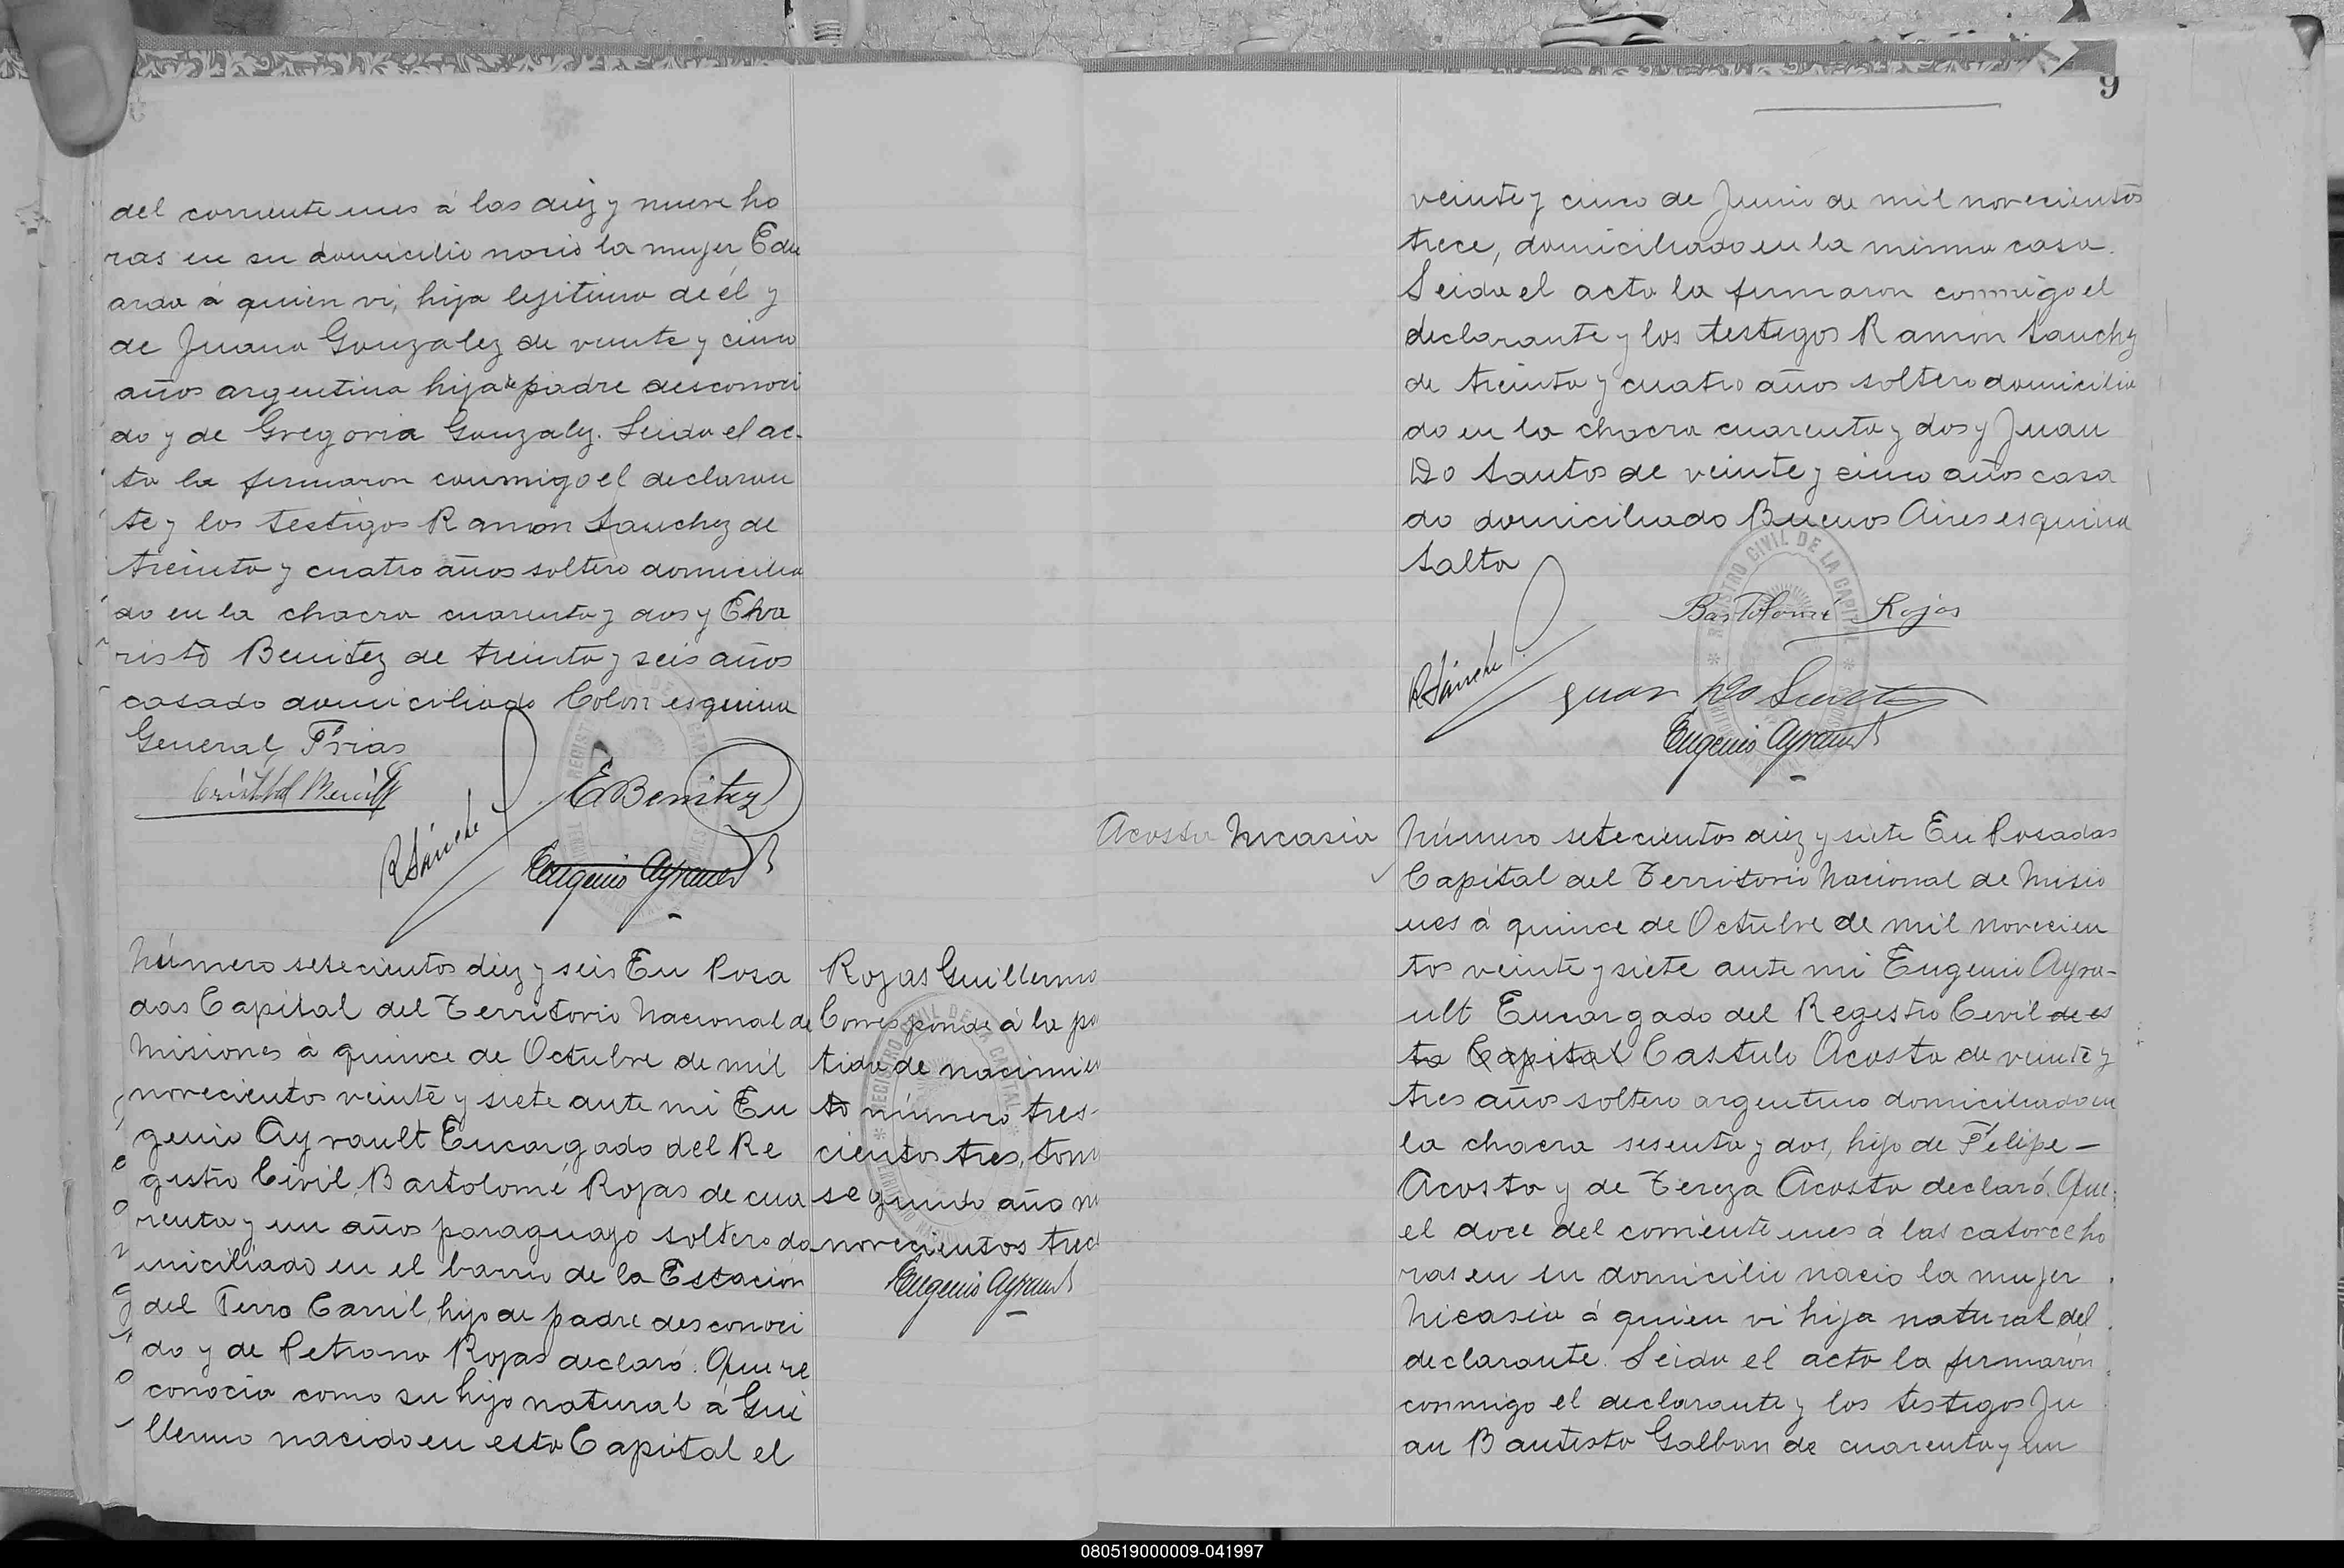 del corriente mes á las diez y nueve ho
ras en su domicilio nació la mujer, Edu
arda á quien vi, hija lejitima de él y
de Juana Gonzalez de veinte y cinco
años argentina hija de padre desconoci
do y de Gregoria Gonzalez. Leida el ac-
ta la firmaron conmigo el declaran
te y los testigos Ramon Sanchez de
treinta y cuatro años soltero domicilia
do en la chacra cuarenta y dos y Eva
risto Benitez de treinta y seis años
casado domiciliado Colon esquina
General Frias
E Benitez
R Sánchez
Eugenio Ayrault
Número setecientos diez y seis En Posa
das Capital del Territorio Nacional de
Misiones á quince de Octubre de mil
novecientos veinte y siete ante mi Eu
genio Ayrault Encargado del Re
gistro Civil, Bartolomé Rojas de cua
renta y un años paraguayo soltero do
miciliado en el barrio de la Estación
del Ferro Carril, hijo de padre desconoci
do y de Petrona Rojas declaró: Que re
conocia como su hijo natural á Gui
llermo nacido en esta Capital el
Rojas Guillermo
Corresponde á la par
tida de nacimien
to número tres-
cientos tres, tomo
segundo año mil
novecientos trece
Eugenio Ayrault
9
veinte y cinco de Junio de mil novecientos
trece, domiciliado en la misma casa.
Leida el acta la firmaron conmigo el
declarante y los testigos Ramón Sanchez
de treinta y cuatro años soltero domicilia
do en la chacra cuarenta y dos y Juan
Do Santos de veinte y cinco años casa
do domiciliado Buenos Aires esquina
Salta
Bartolomé Rojas
R Sánchez
Juan Do Santos
Eugenio Ayrault
REGISTRO CIVIL DE LA CAPITAL
Acosta Nicasia
Número setecientos diez y siete En Posadas
Capital del Territorio Nacional de Misio
nes á quince de Octubre de mil novecien
tos veinte y siete ante mi Eugenio Ayra-
ult Encargado del Registro Civil de es
ta Capital Castulo Acosta de veinte y
tres años soltero argentino domiciliado en
la chacra sesenta y dos, hijo de Felipe -
Acosta y de Tereza Acosta declaró: Que:
el doce del corriente mes á las catorce ho
ras en su domicilio nació la mujer
Nicasia á quien vi hija natural del
declarante. Leida el acta la firmaron
conmigo el declarante y los testigos Ju
an Bautista Galban de cuarenta y un
080519000009-041997